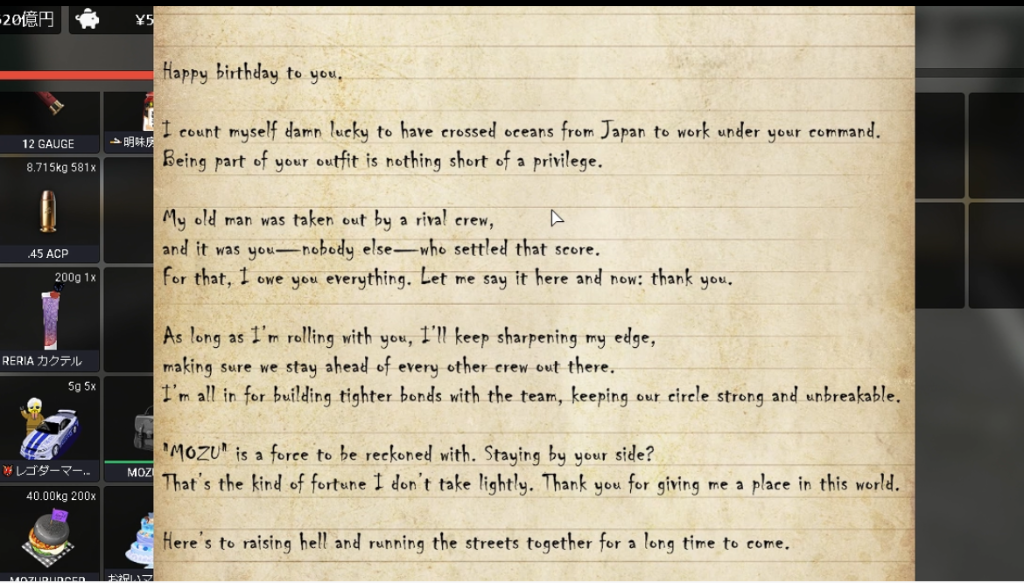 520億円
¥5
12 GAUGE
明味房
8.715kg 581x
.45 ACP
200g 1x
RERIA カクテル
5g 5x
レゴダーマー...
MOZU
40.00kg 200x
MOZUBURGER
お祝いマ
Happy birthday to you.
I count myself damn lucky to have crossed oceans from Japan to work under your command.
Being part of your outfit is nothing short of a privilege.
My old man was taken out by a rival crew,
and it was you—nobody else—who settled that score.
For that, I owe you everything. Let me say it here and now: thank you.
As long as I'm rolling with you, I'll keep sharpening my edge,
making sure we stay ahead of every other crew out there.
I'm all in for building tighter bonds with the team, keeping our circle strong and unbreakable.
"MOZU" is a force to be reckoned with. Staying by your side?
That's the kind of fortune I don't take lightly. Thank you for giving me a place in this world.
Here's to raising hell and running the streets together for a long time to come.